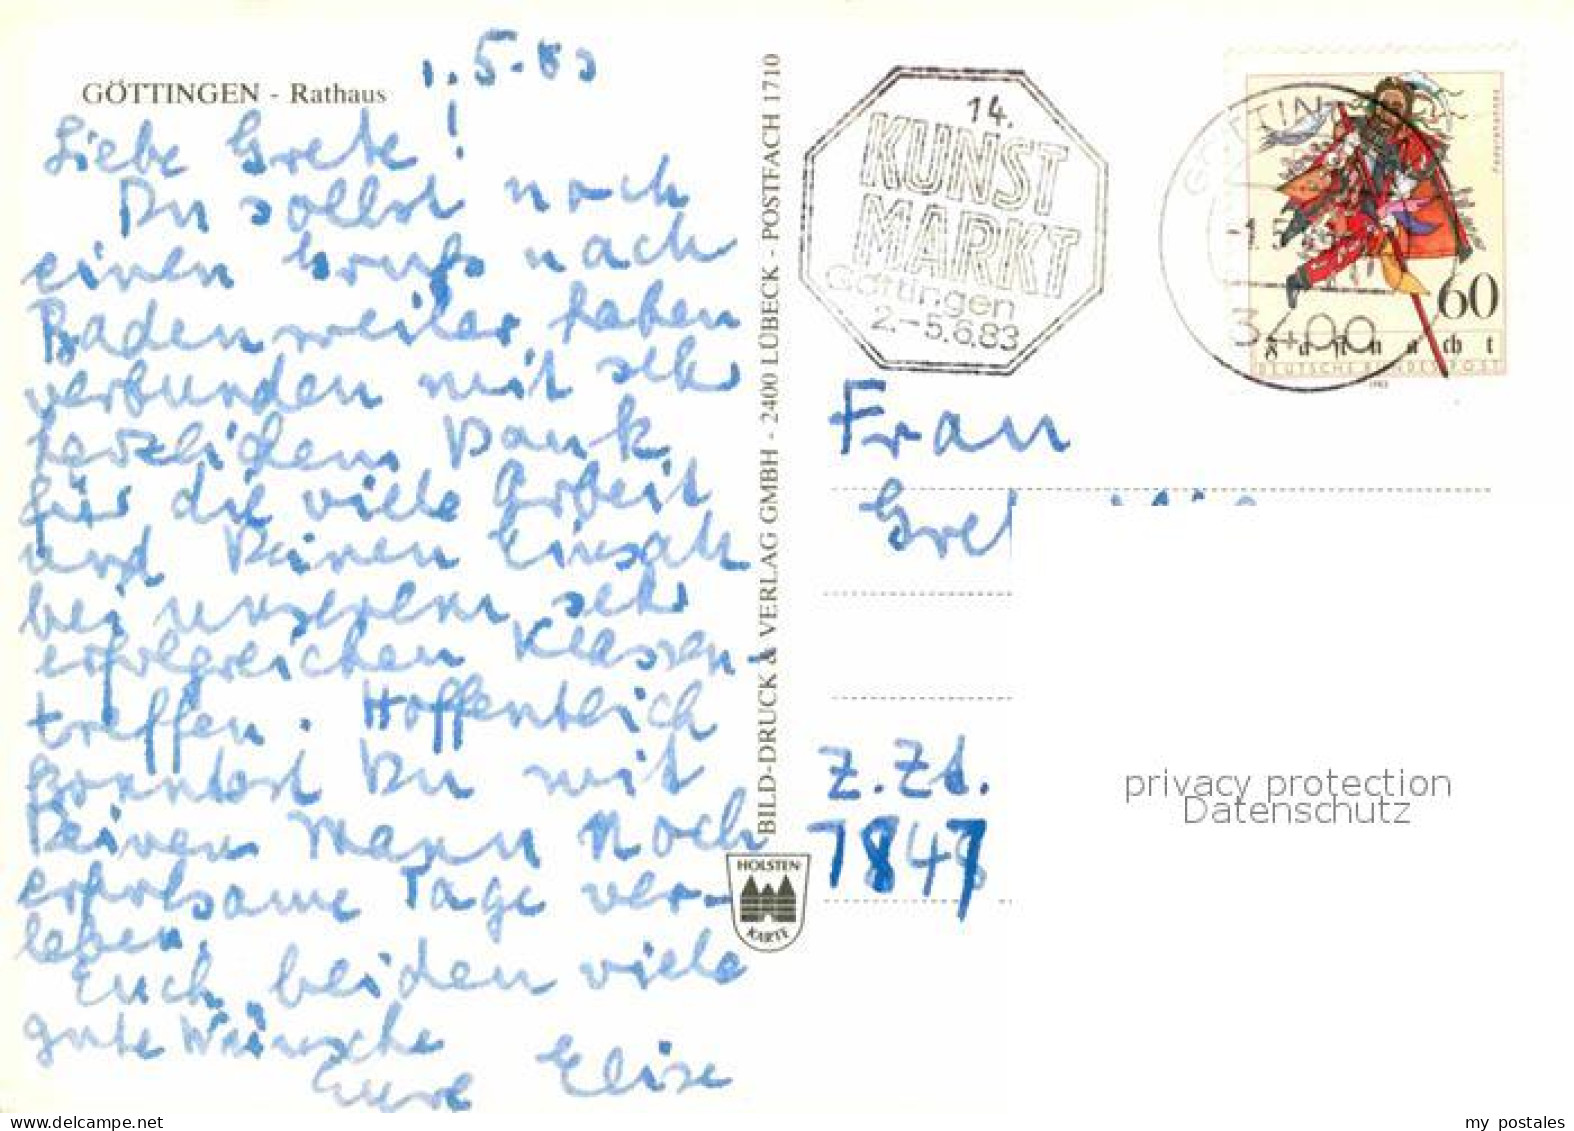 1.5.83
GÖTTINGEN - Rathaus
Liebe Grete!
Du sollst noch
einen Gruß nach
Badenweiler haben
verbunden mit sehr
herzlichem Dank
für die viele Arbeit
und Deinen Einsatz
bei unserem sehr
erfolgreichen Klassen-
treffen. Hoffentlich
konntest Du mit
Deinem Mann noch
erholsame Tage ver-
leben.
Euch beiden viele
gute Wünsche
Eure Elise
BILD-DRUCK & VERLAG GMBH - 2400 LÜBECK - POSTFACH 1710
HOLSTEN-
KARTE
14.
KUNST
MARKT
Göttingen
2.-5.6.83
GÖTTIN
-1.5.
3400
Federahannes
60
Fastnacht
DEUTSCHE BUNDESPOST
1983
Frau
Gret
z.Zt.
7847
privacy protection
Datenschutz
my postales